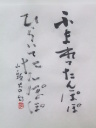 ふまれてたんぽぽ
ひらいて
たんぽぽ
山頭火